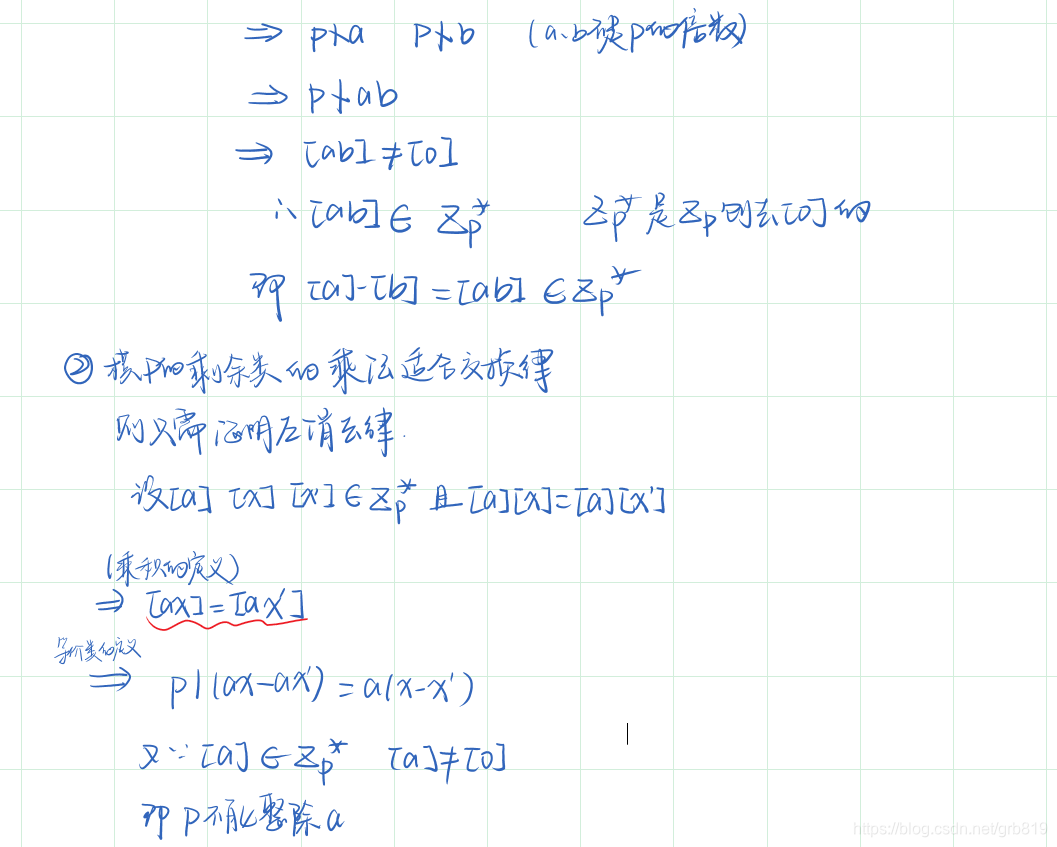 ⇒ p∤a  p∤b  (a.b不是p的倍数)
⇒ p∤ab
⇒ [ab]≠[0]
∴ [ab]∈ Zp*  Zp* 是 Zp 剔去[0]的
即 [a]·[b]=[ab] ∈Zp*
② 模p的剩余类的乘法适合交换律
则只需证明左消去律.
设[a] [x] [x'] ∈ Zp* 且 [a][x]=[a][x']
(乘积的定义)
⇒ [ax]=[ax']
等价类的定义
⇒ p|(ax-ax') = a(x-x')
又∵ [a]∈Zp*  [a]≠[0]
即 p不能整除a
https://blog.csdn.net/grb819